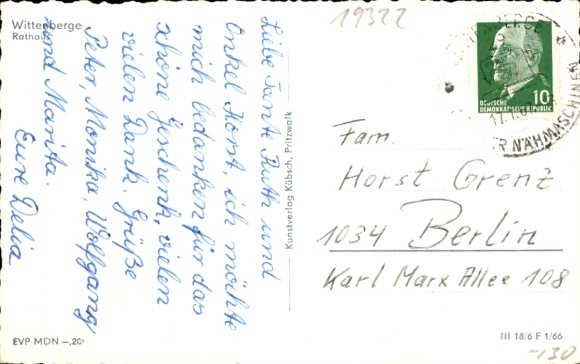 Wittenberge
Rathaus
19322
Liebe Tante Ruth und
Onkel Horst, ich möchte
mich bedanken für das
schöne Geschenk, vielen
vielen Dank. Grüße
Peter, Monika, Wolfgang
und Marita.
Eure Delia
Kunstverlag Kübsch, Pritzwalk
DEUTSCHE
DEMOKRATISCHE REPUBLIK
10
NÄHMASCHINEN
Fam.
Horst Grenz
1034 Berlin
Karl Marx Allee 108
EVP MDN -,20
III 18/6 F 1/66
-130